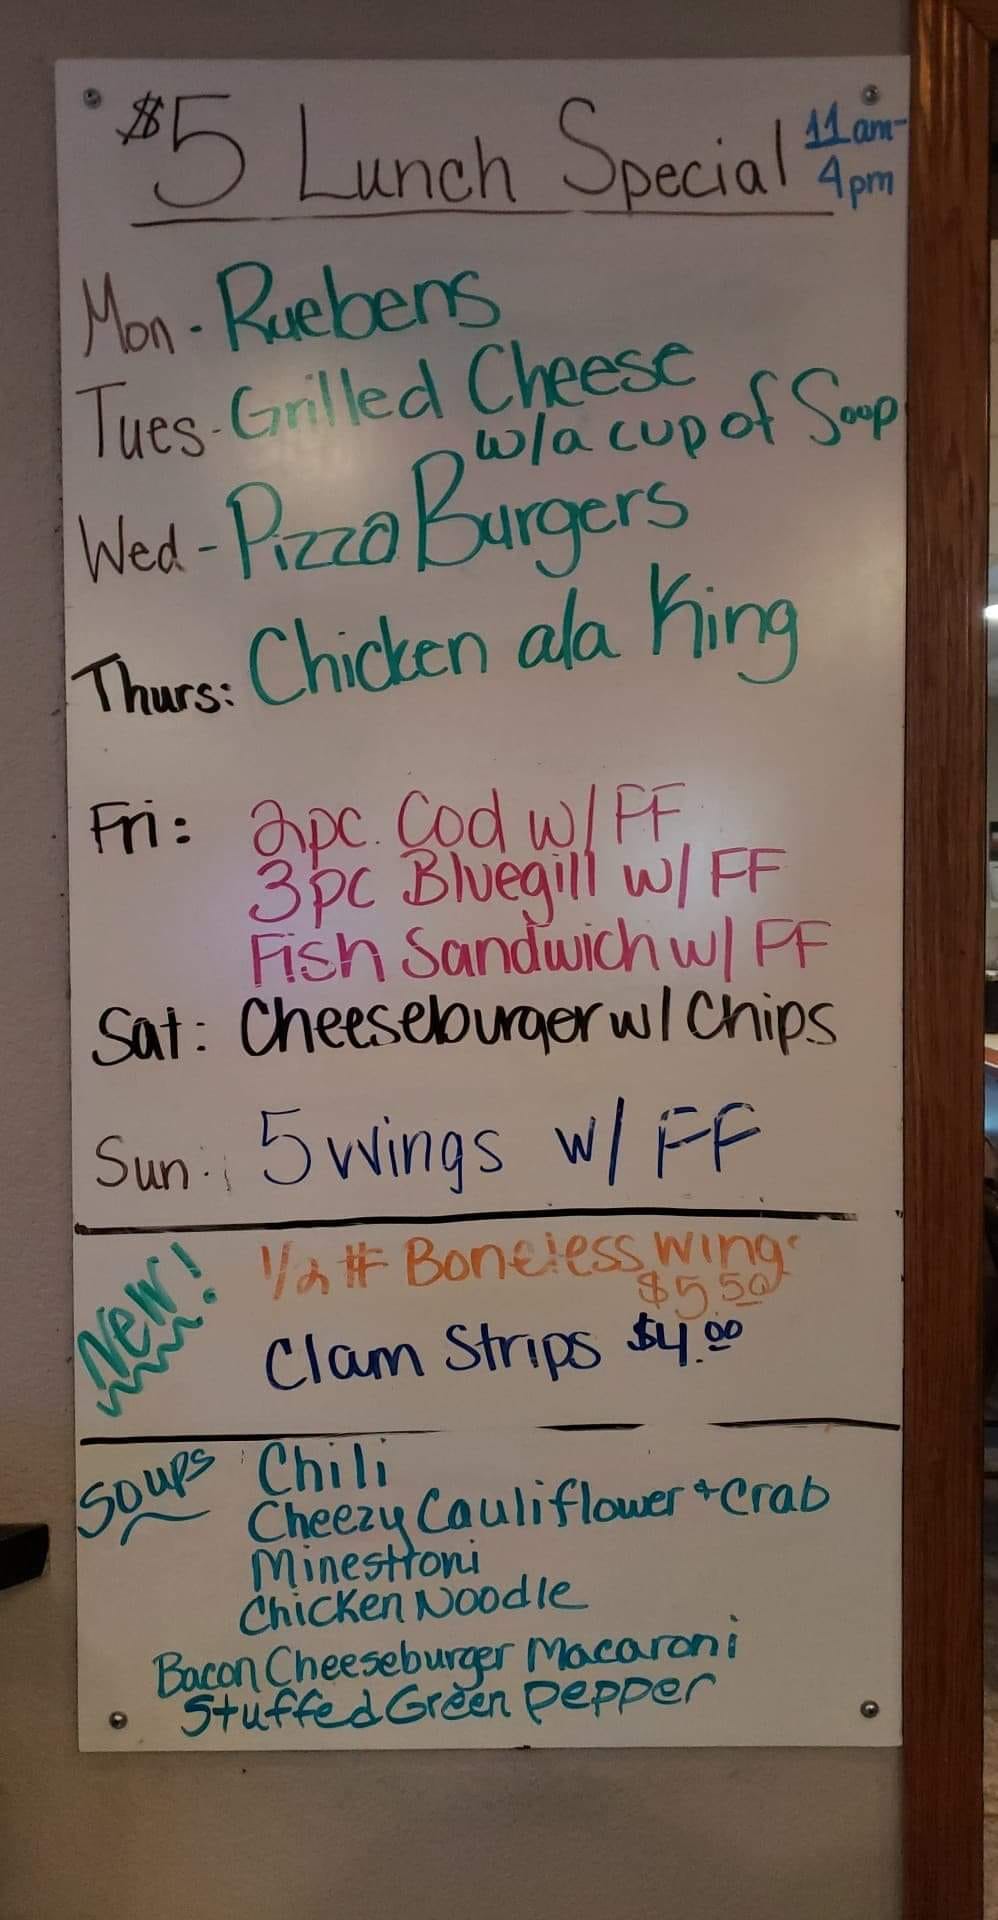 $5 Lunch Special 11am-
4pm
Mon - Ruebens
Tues - Grilled Cheese
w/a cup of Soup
Wed - Pizza Burgers
Thurs: Chicken ala King
Fri: 2pc. Cod w/ FF
3pc Bluegill w/ FF
Fish Sandwich w/ FF
Sat: Cheeseburger w/ Chips
Sun: 5 Wings w/ FF
New! 1/2 # Boneless Wings
$5.50
Clam Strips $4.00
Soups Chili
Cheezy Cauliflower + Crab
Minestroni
Chicken Noodle
Bacon Cheeseburger Macaroni
Stuffed Green Pepper